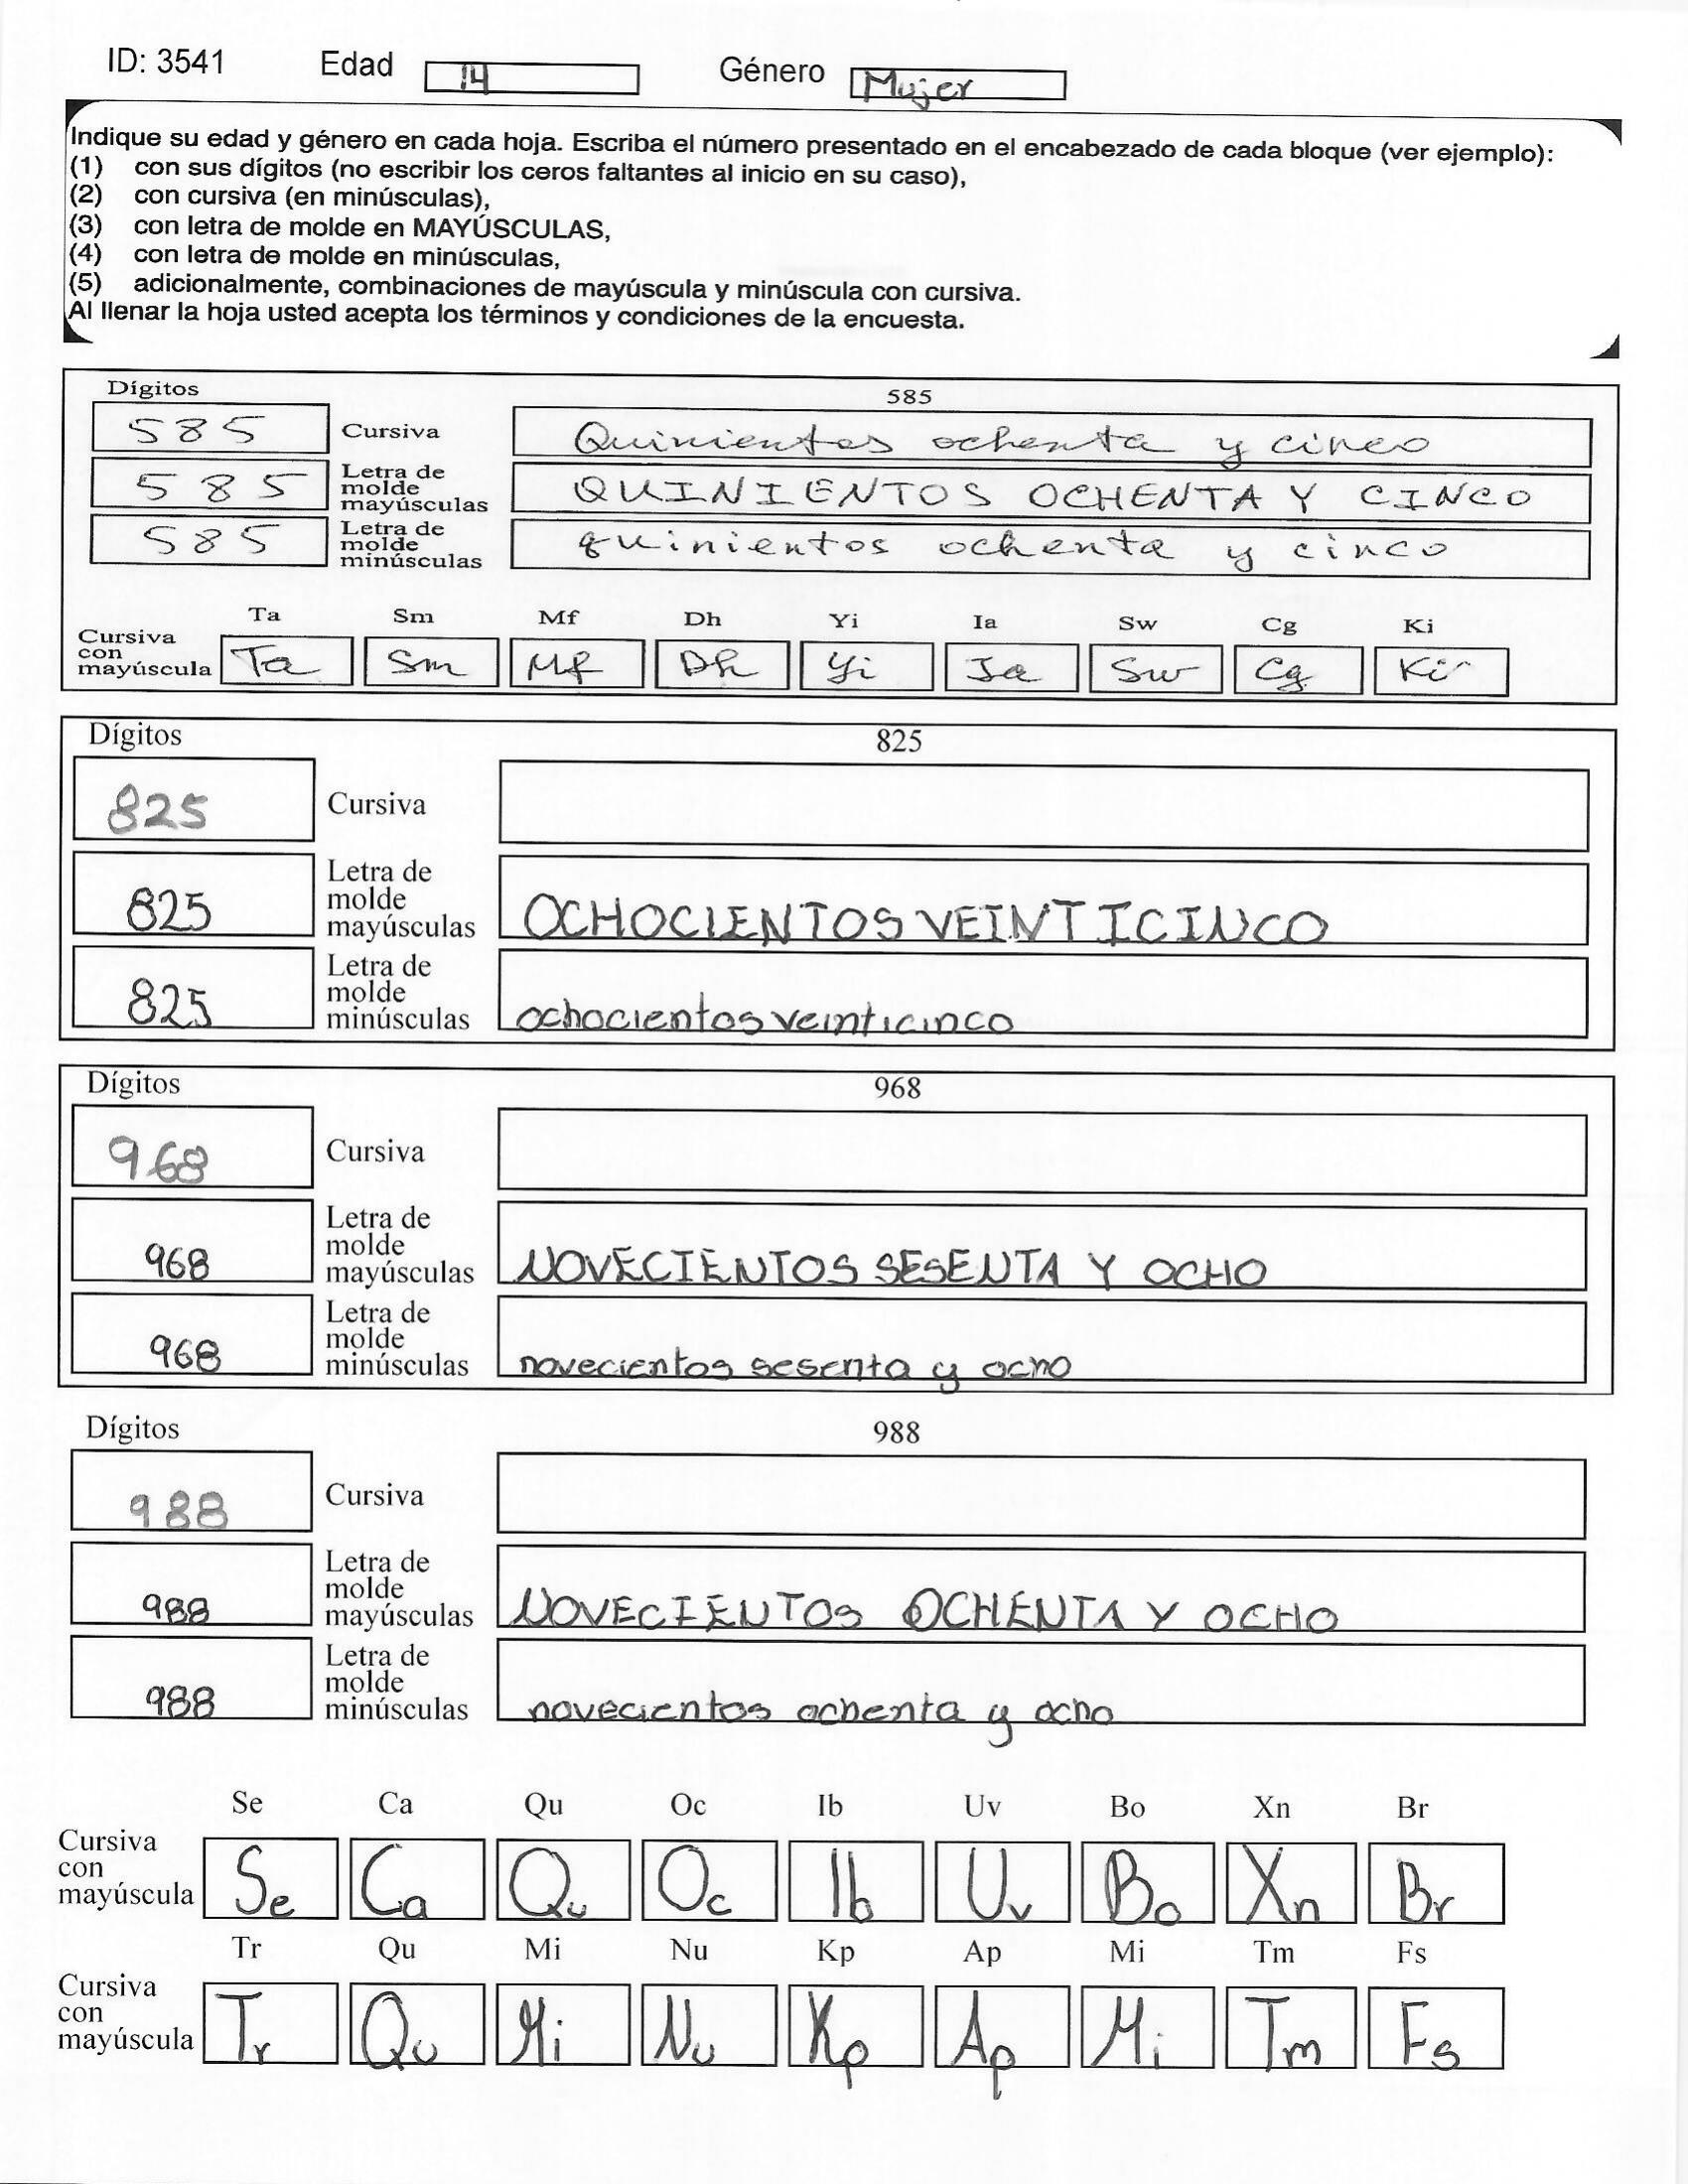 ID: 3541 Edad 14 Género Mujer
Indique su edad y género en cada hoja. Escriba el número presentado en el encabezado de cada bloque (ver ejemplo):
(1) con sus dígitos (no escribir los ceros faltantes al inicio en su caso),
(2) con cursiva (en minúsculas),
(3) con letra de molde en MAYÚSCULAS,
(4) con letra de molde en minúsculas,
(5) adicionalmente, combinaciones de mayúscula y minúscula con cursiva.
Al llenar la hoja usted acepta los términos y condiciones de la encuesta.
Dígitos 585
585 Cursiva Quinientos ochenta y cinco
585 Letra de molde mayúsculas QUINIENTOS OCHENTA Y CINCO
585 Letra de molde minúsculas quinientos ochenta y cinco
Ta Sm Mf Dh Yi Ia Sw Cg Ki
Cursiva con mayúscula Ta Sm Mf Dh Yi Ia Sw Cg Ki
Dígitos 825
825 Cursiva
825 Letra de molde mayúsculas OCHOCIENTOS VEINTICINCO
825 Letra de molde minúsculas ochocientos veinticinco
Dígitos 968
968 Cursiva
968 Letra de molde mayúsculas NOVECIENTOS SESENTA Y OCHO
968 Letra de molde minúsculas novecientos sesenta y ocho
Dígitos 988
988 Cursiva
988 Letra de molde mayúsculas NOVECIENTOS OCHENTA Y OCHO
988 Letra de molde minúsculas novecientos ochenta y ocho
Se Ca Qu Oc Ib Uv Bo Xn Br
Cursiva con mayúscula Se Ca Qu Oc Ib Uv Bo Xn Br
Tr Qu Mi Nu Kp Ap Mi Tm Fs
Cursiva con mayúscula Tr Qu Mi Nu Kp Ap Mi Tm Fs